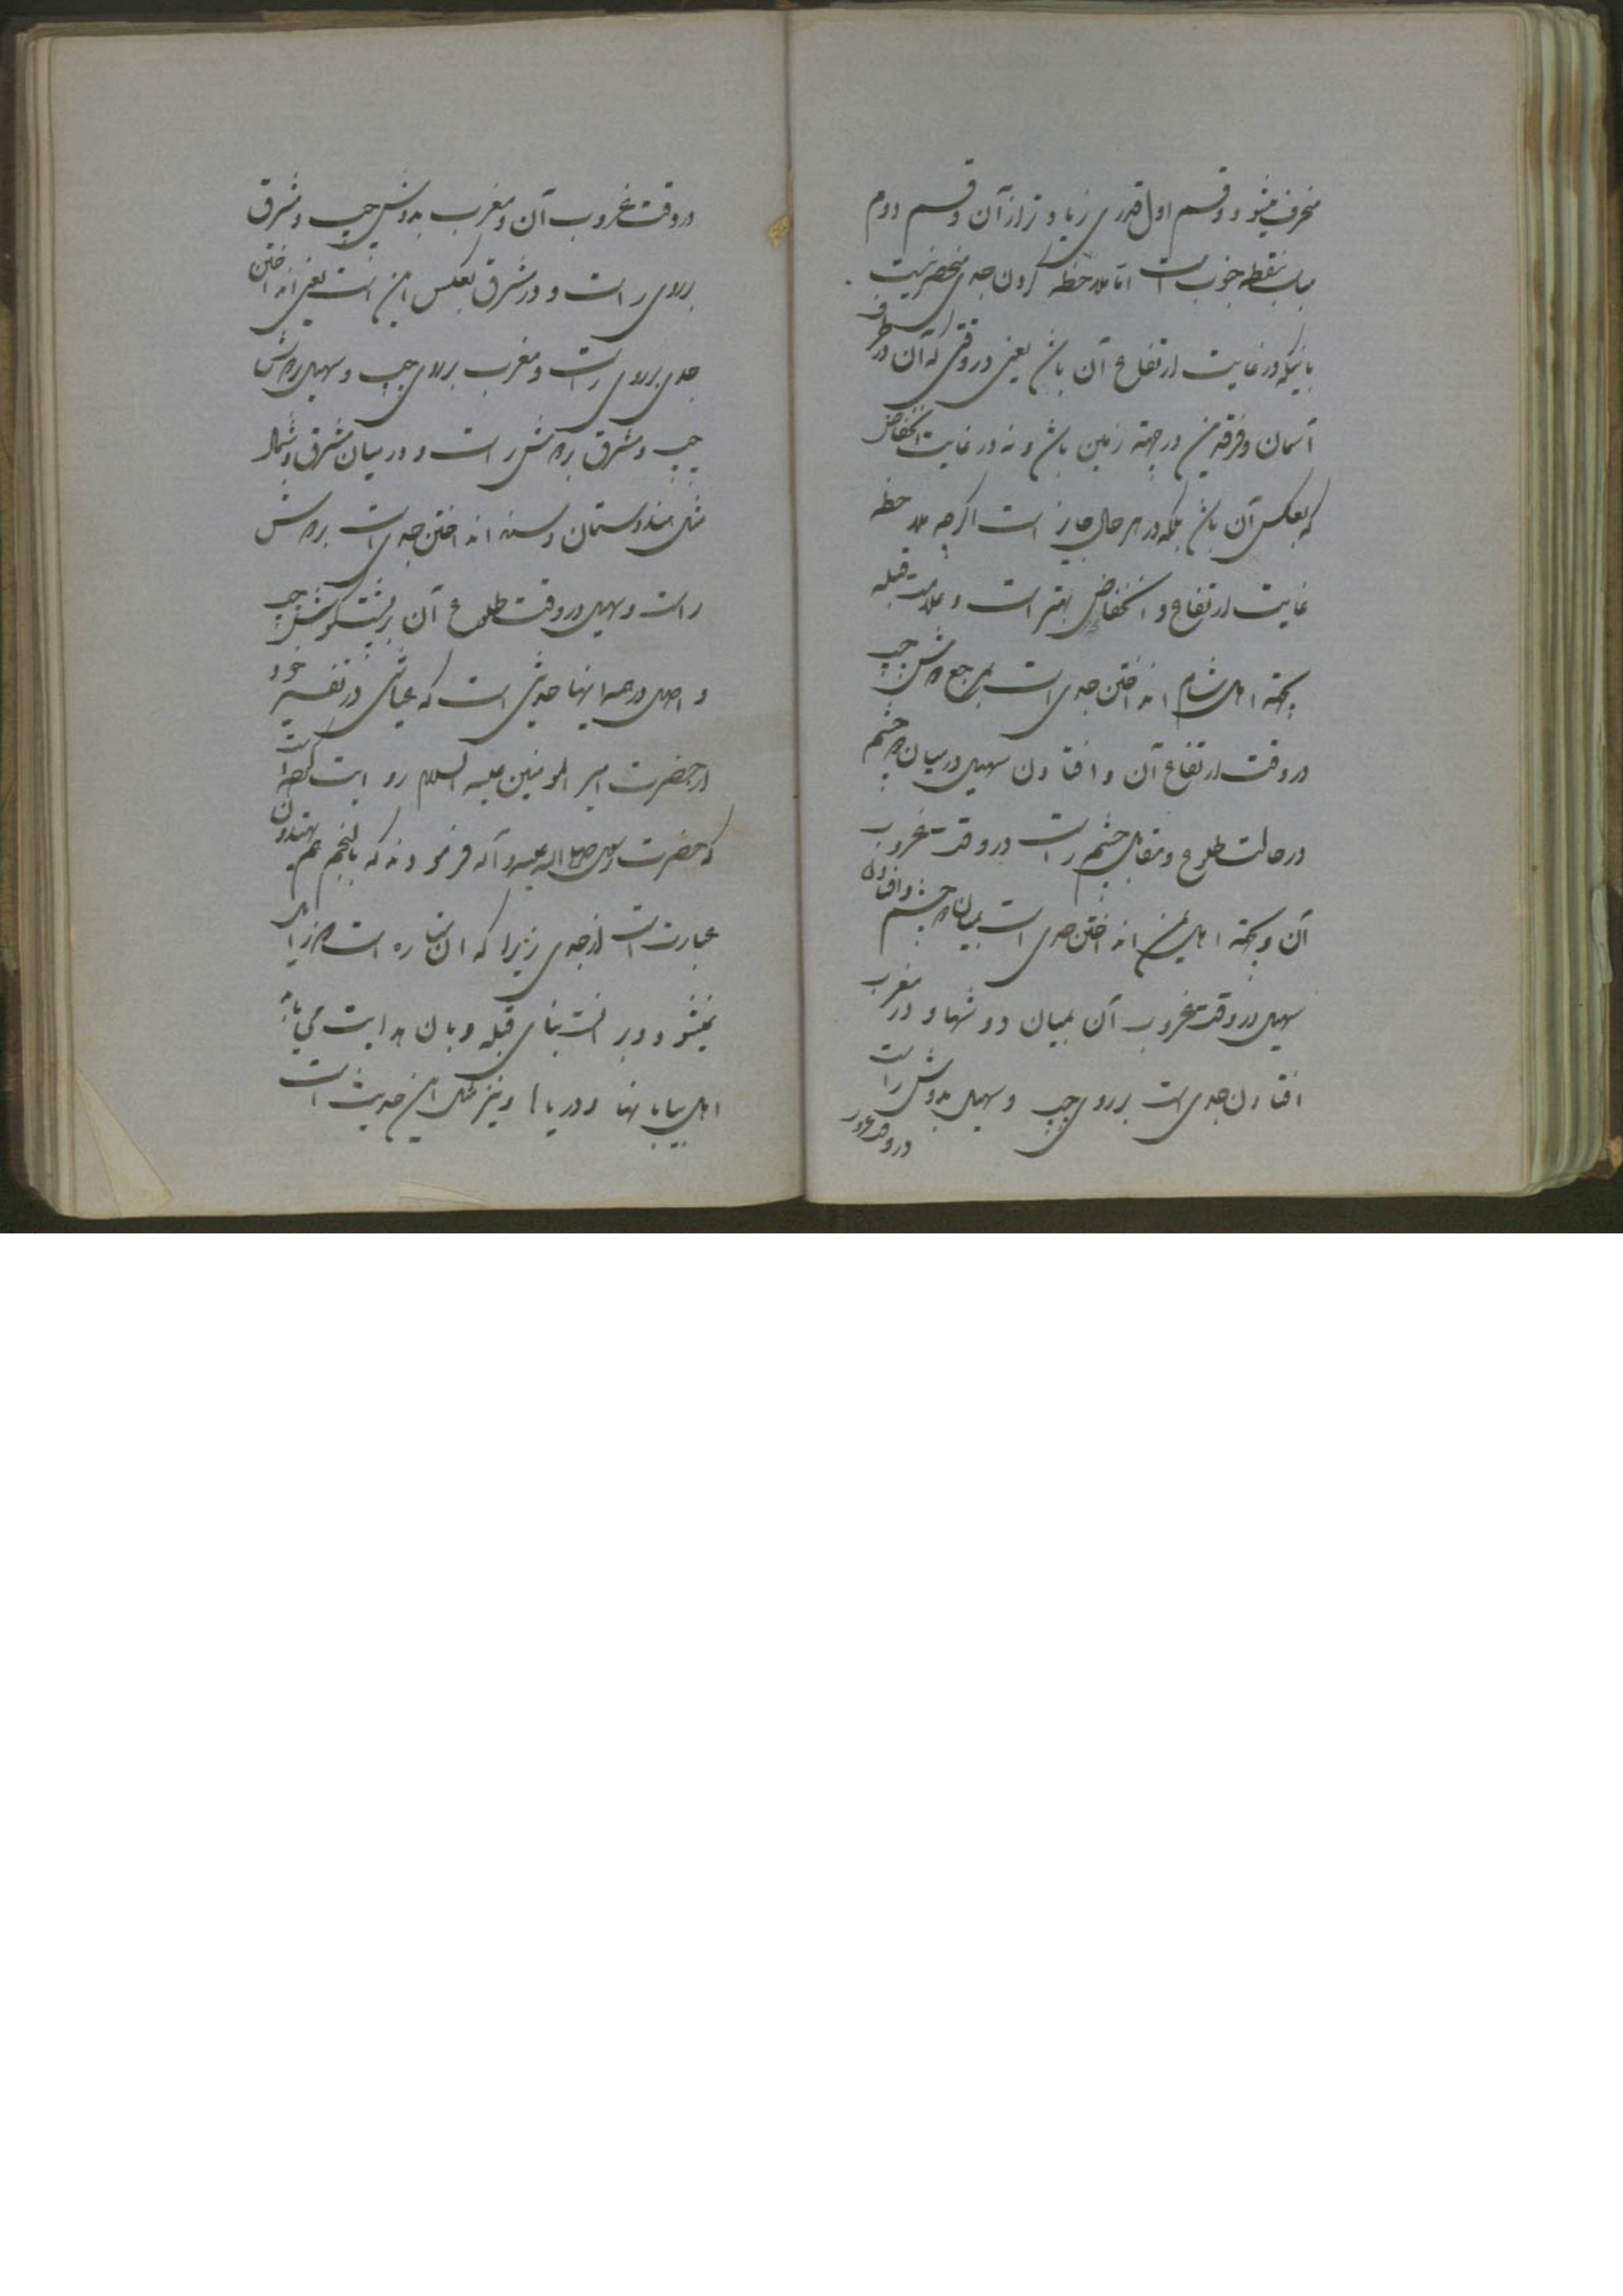 منحرف میشود و قسم اول قدری زیاد تر از آن و قسم دوم
بجانب نقطه جنوب است اما ملاحظه کردن جدی منحصر نیست
باینکه در غایت ارتفاع آن باشد یعنی در وقتی که آن در طرف
آسمان و فرقدین در جهته زمین باشد و نه در غایت انخفاض
که بعکس آن باشد بلکه در هر حال جایز است اگرچه ملاحظه
غایت ارتفاع و انخفاض بهتر است و علامت قبله
بجهته اهل شام انداختن جدی است دوش چپ
در وقت ارتفاع آن و افتادن سهیل در میان دو چشم
در حالت طلوع و مقابل چشم راست در وقت غروب
آن و بجهته اهل یمن انداختن جدی است بمیان دو چشم و افتادن
سهیل در وقت غروب آن بمیان دو شها و در مغرب
افتادن جدی است بر روی چپ و سهیل بدوش راست
در وقت غروب
در وقت غروب آن و مغرب بدوش چپ و مشرق
بر روی راست و در مشرق بعکس این است یعنی انداختن
جدی بر روی راست و مغرب بر روی چپ و سهیل بر دوش
چپ و مشرق بر دوش راست و در میان مشرق و شمال
مثل هندوستان و سند انداختن جدی است بر دوش
راست و سهیل در وقت طلوع آن بر پشت گوش چپ
و اصل در همه اینها حدیثی است که عیاشی در تفسیر خود
از حضرت امیر المومنین علیه السلام روایت کرده است
که حضرت رسول صلی الله علیه و آله فرمودند که بالنجم هم یهتدون
عبارت است از جدی زیرا که آن ستاره است که زایل
نمیشود و بر آنست بنای قبله و بآن هدایت می یابند
اهل بیابانها و دریاها و نیز مثل این حدیث است